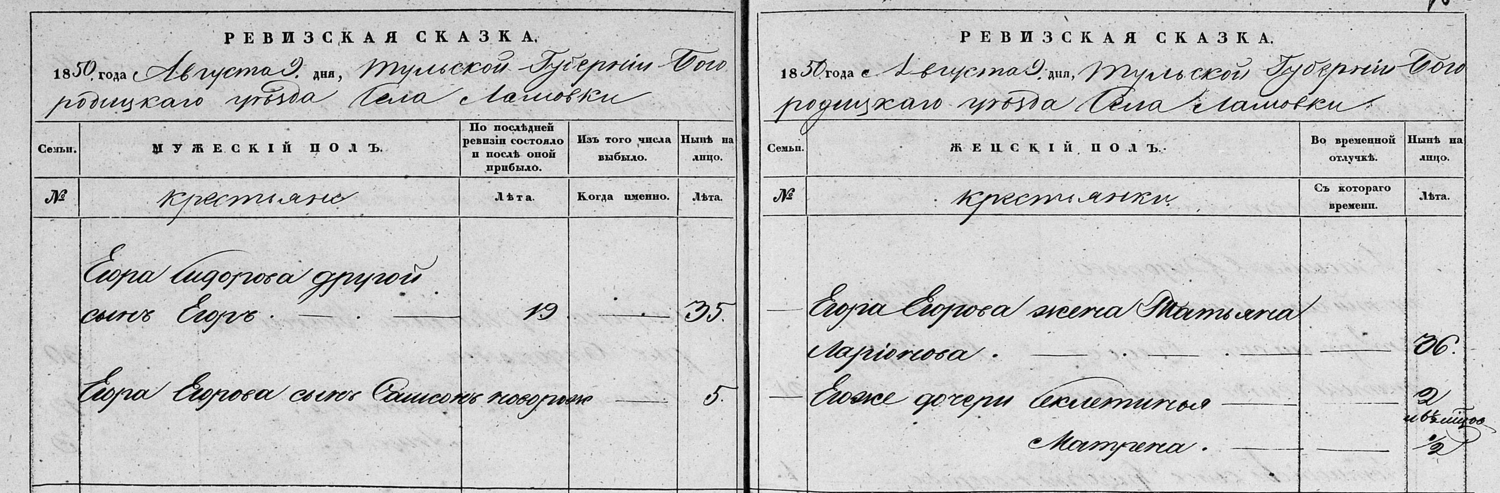 РЕВИЗСКАЯ СКАЗКА.
1850 года Августа 9 дня, Тульской Губерніи Бого
родицкаго уѣзда Села Ламовки
Семьи.
МУЖЕСКІЙ ПОЛЪ.
По послѣдней
ревизіи состояло
и послѣ оной
прибыло.
Изъ того числа
выбыло.
Нынѣ на
лицо.
№
крестьяне
Лѣта.
Когда именно.
Лѣта.
Егора Сидорова другой
сынъ Егоръ. 19 35.
Егора Егорова сынъ Самсонъ новорож 5.
РЕВИЗСКАЯ СКАЗКА.
1850 года Августа 9 дня, Тульской Губерніи Бого
родицкаго уѣзда Села Ламовки
Семьи.
ЖЕНСКІЙ ПОЛЪ.
Во временной
отлучкѣ.
Нынѣ на
лицо.
№
крестьянки
Съ котораго
времени.
Лѣта.
Егора Егорова жена Татьяна
Ларіонова. 36.
Егоже дочери Феклетинья 2
Матрена. 1/2